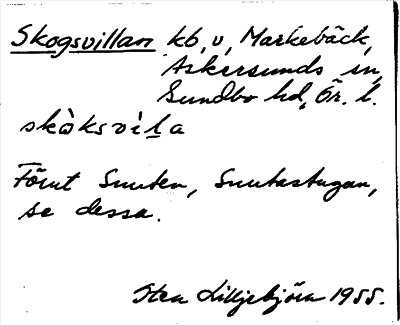 Skogsvillan kb, v, Markebäck,
Askersunds sn,
Sundbo hd, Ör. l.
skòksvìḷa
Förut Snuten, Snutastugan,
se dessa.
Sten Liljebjörn 1955.